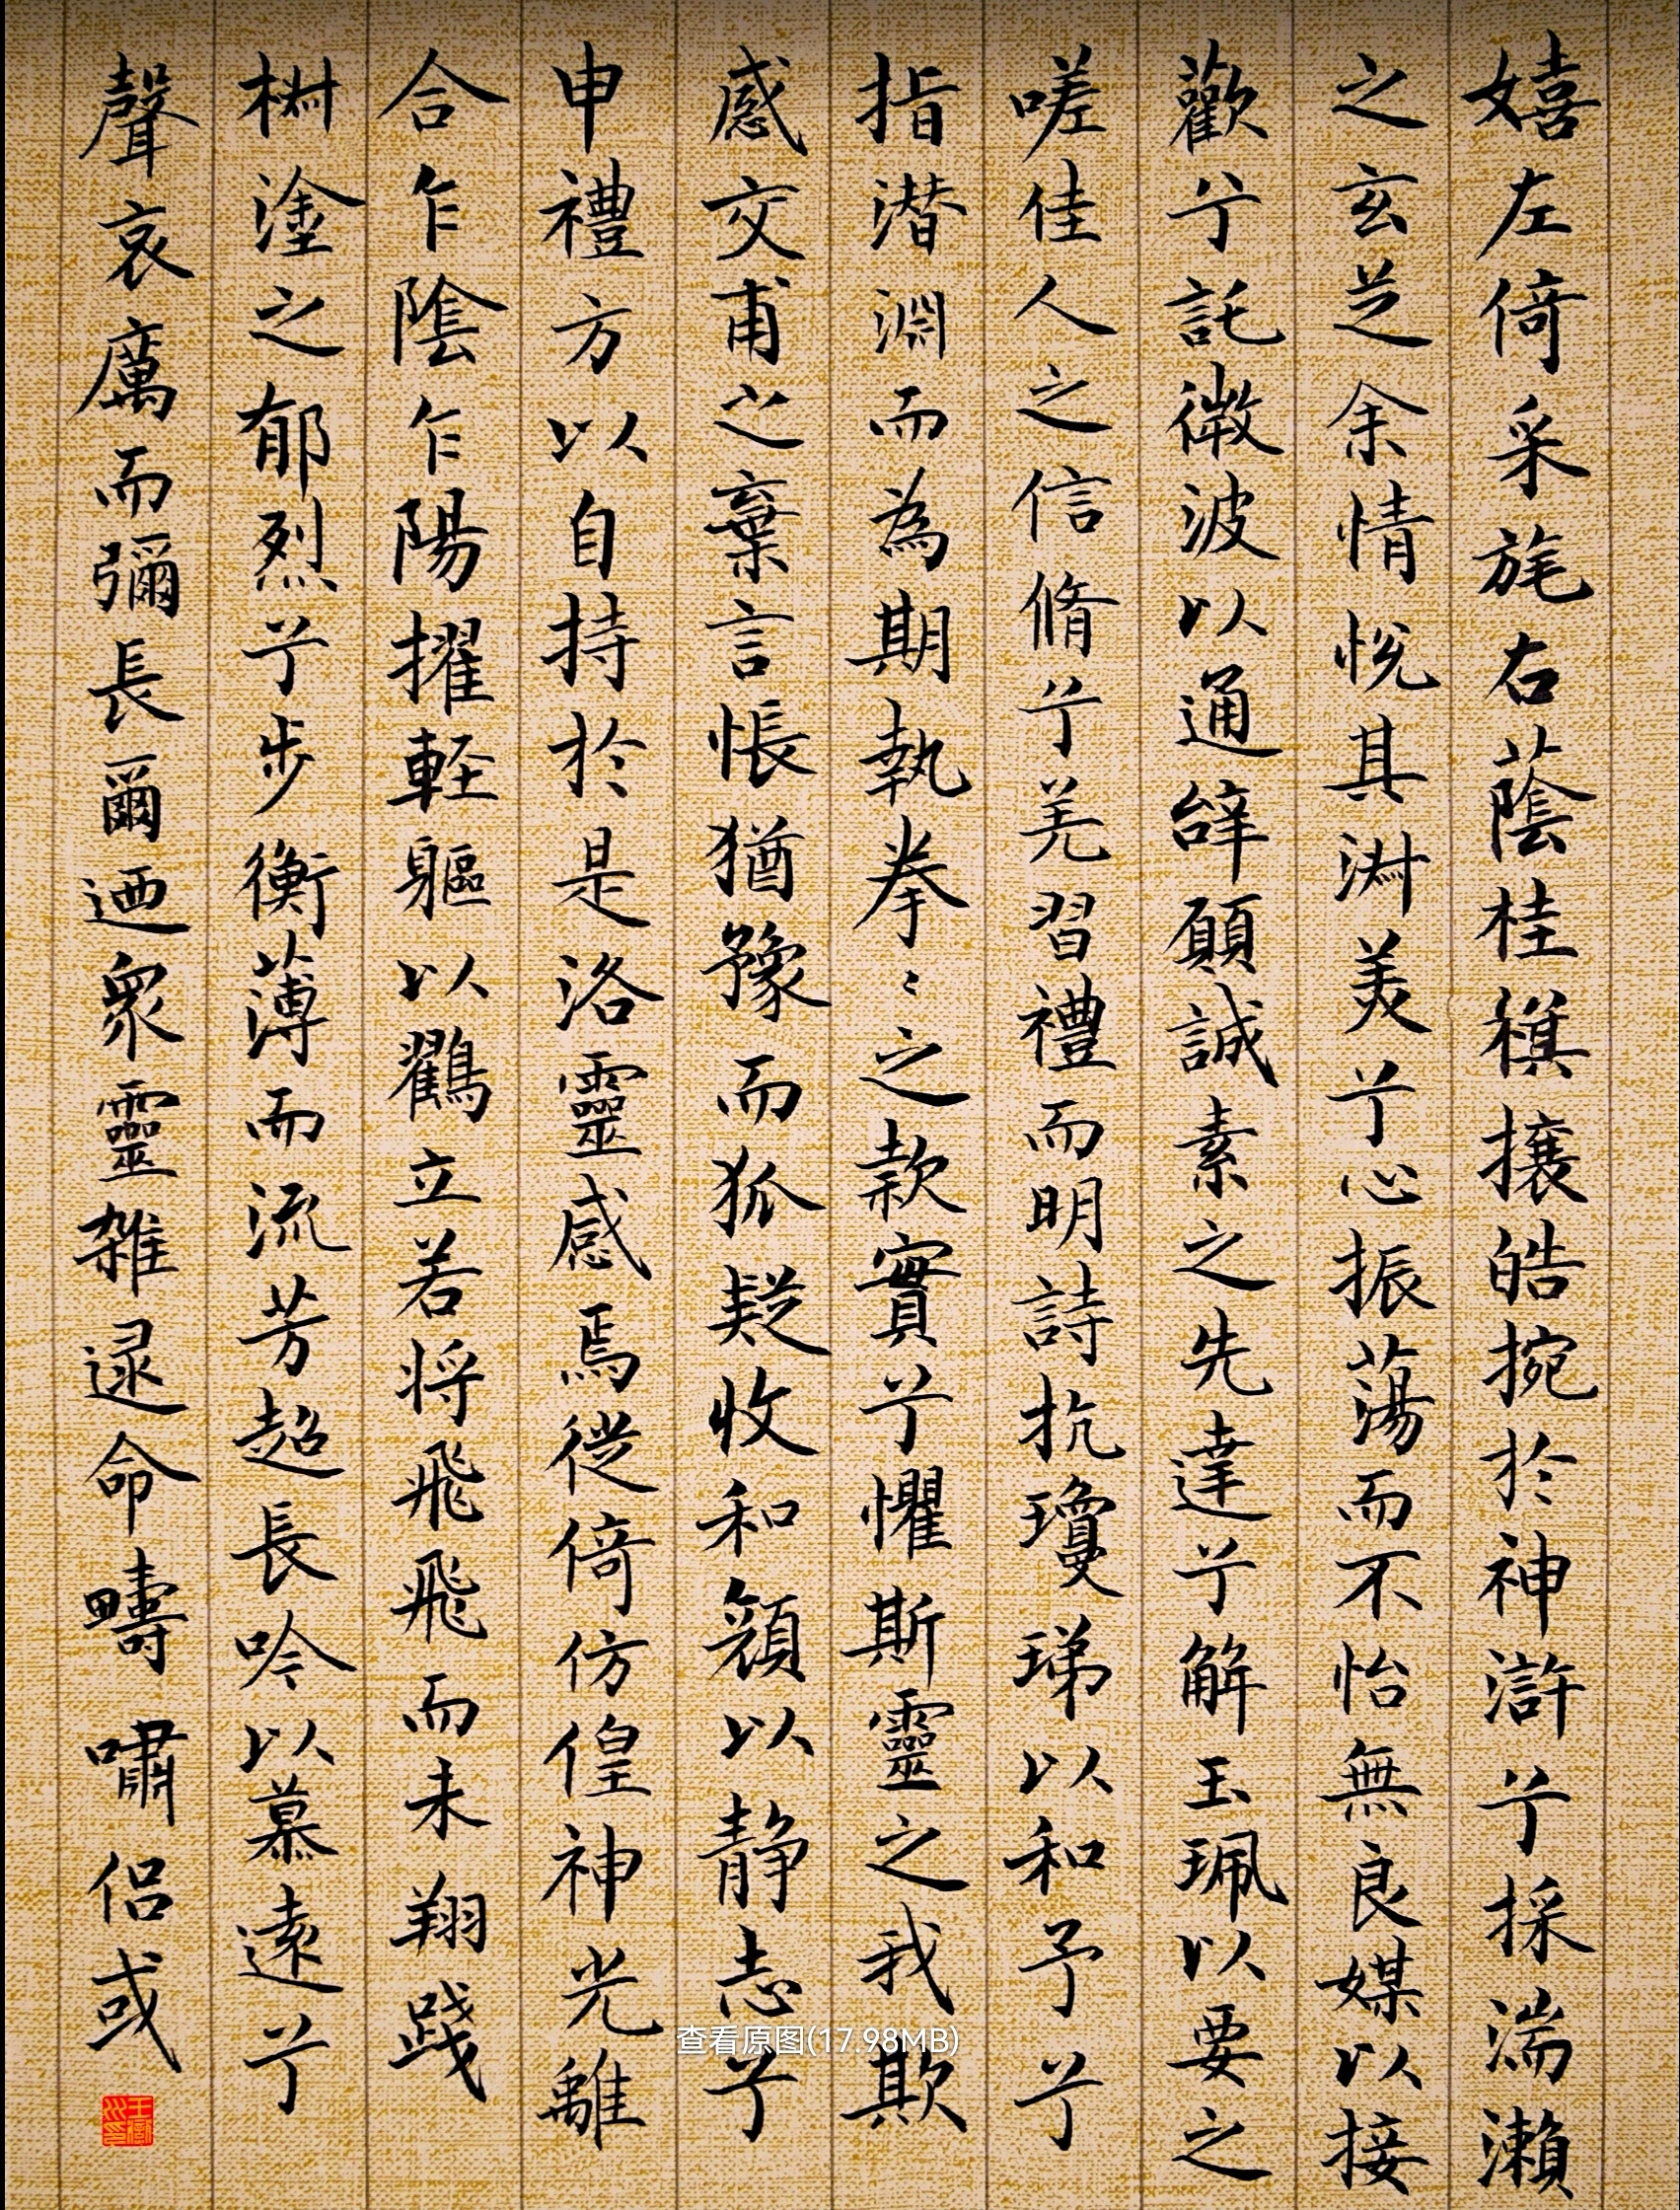 嬉左倚采旄右蔭桂旗攘皓捥於神滸兮採湍瀨
之玄芝余情悅其淋美兮心振蕩而不怡無良媒以接
歡兮託微波以通辝願誠素之先達兮解玉珮以要之
嗟佳人之信脩兮羌習禮而明詩抗瓊珶以和予兮
指潛淵而為期執拳〻之款實兮懼斯靈之我欺
感交甫之棄言悵猶豫而狐疑收和顏以静志兮
申禮方以自持於是洛靈感焉徙倚仿偟神光離
合乍陰乍陽擢輕軀以鸖立若将飛飛而未翔踐
椒塗之郁烈兮步衡薄而流芳超長吟以慕遠兮
聲哀厲而彌長爾迺衆靈雑逯命疇嘯侶或
查看原图(17.98MB)